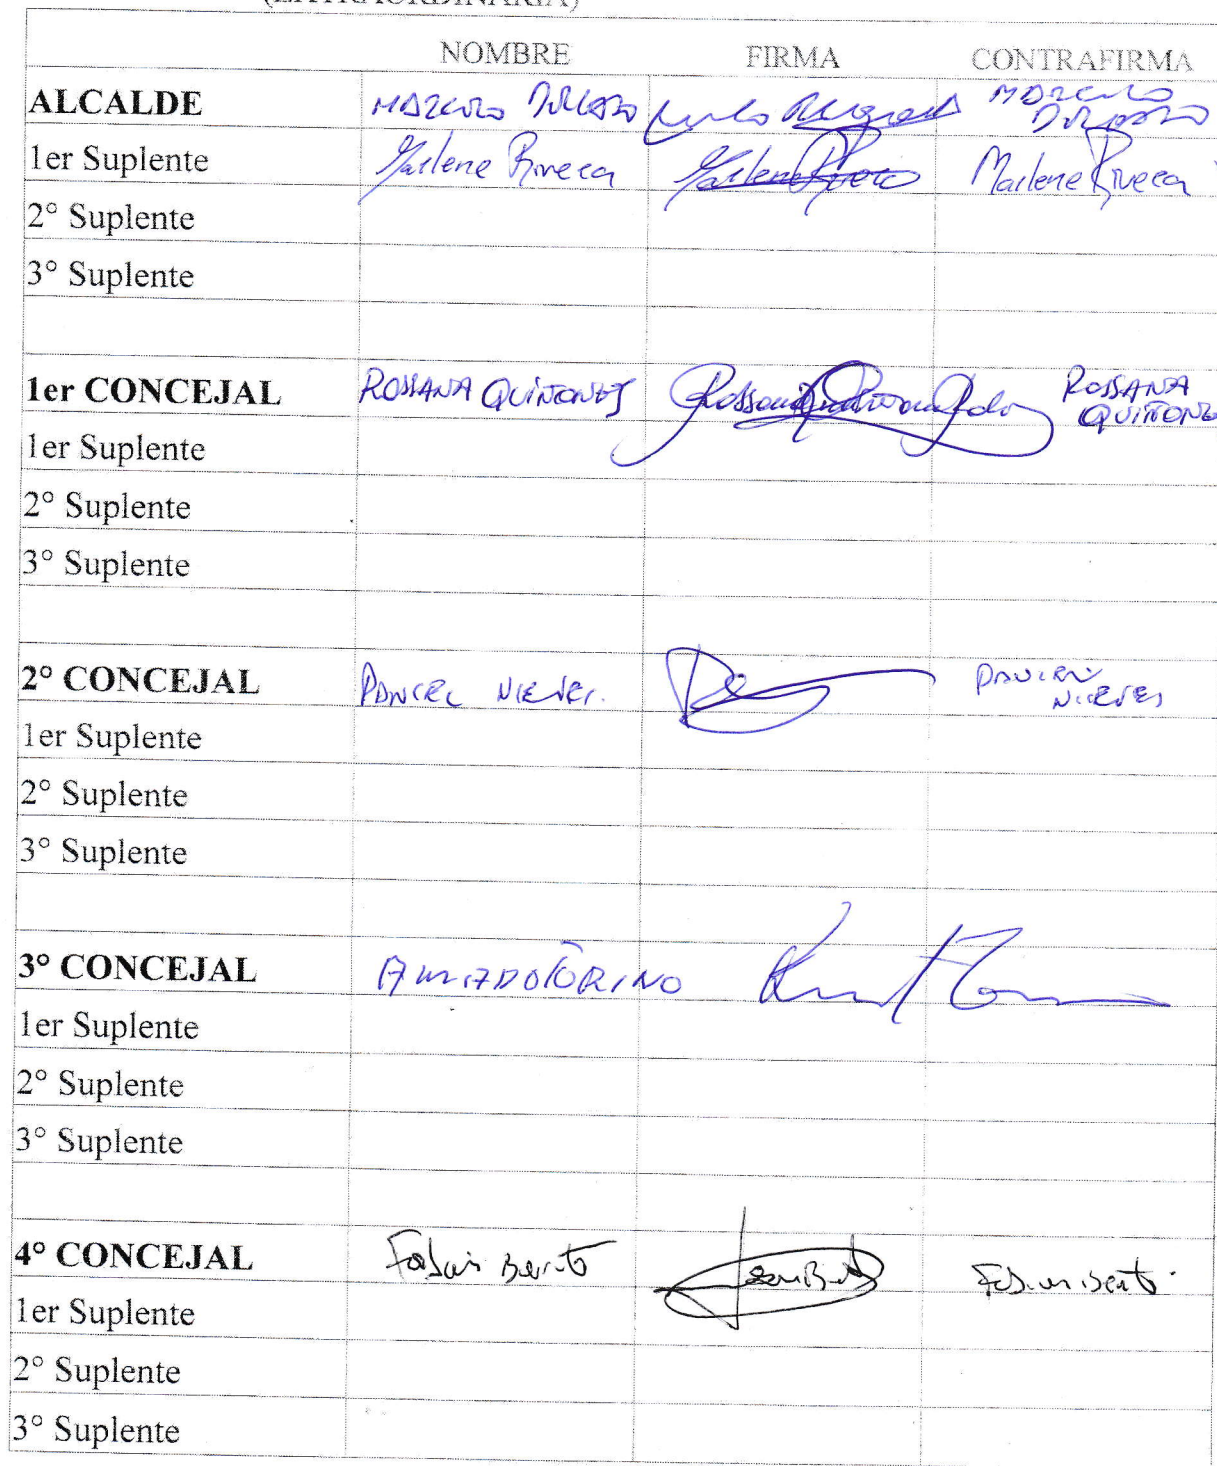 (EXTRAORDINARIA)
NOMBRE FIRMA CONTRAFIRMA
ALCALDE
1er Suplente Marlene Rivera Marlene Rivera
2° Suplente
3° Suplente
1er CONCEJAL ROSSANA QUIÑONES ROSSANA
QUIÑONES
1er Suplente
2° Suplente
3° Suplente
2° CONCEJAL NIEVES
NIEVES
1er Suplente
2° Suplente
3° Suplente
3° CONCEJAL AMADO TORINO
1er Suplente
2° Suplente
3° Suplente
4° CONCEJAL Fabian
1er Suplente
2° Suplente
3° Suplente